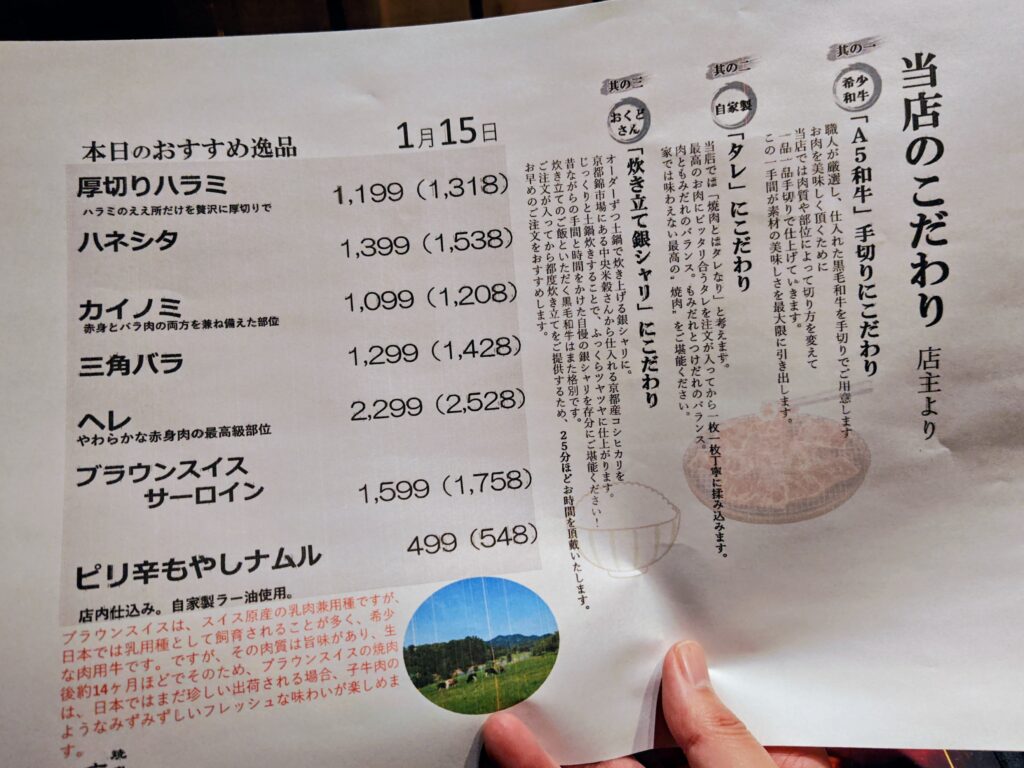 当店のこだわり 店主より
其の一
希少
和牛
「A5和牛」手切りにこだわり
職人が厳選し、仕入れた黒毛和牛を手切りでご用意します
お肉を美味しく頂くために
当店では肉質や部位によって切り方を変えて
一品一品手切りで仕上げていきます。
この一手間が素材の美味しさを最大限に引き出します。
其の二
自家製
「タレ」にこだわり
当店では「焼肉とはタレなり」と考えます。
最高のお肉にピッタリ合うタレを注文が入ってから一枚一枚丁寧に揉み込みます。
肉ともみだれのバランス。もみだれとつけだれのバランス。
家では味わえない最高の"焼肉"をご堪能ください。
其の三
おくど
さん
「炊き立て銀シャリ」にこだわり
オーダーずつ土鍋で炊き上げる銀シャリに。
京都錦市場にある中央米穀さんから仕入れる京都産コシヒカリを
じっくりと土鍋炊きすることで、ふっくらツヤツヤに仕上がります。
昔ながらの手間と時間をかけた自慢の銀シャリを存分にご堪能ください！
炊き立てのご飯といただく黒毛和牛はまた格別です。
ご注文が入ってから都度炊き立てをご提供するため、25分ほどお時間を頂戴いたします。
お早めのご注文をおすすめします。
本日のおすすめ逸品 1月15日
厚切りハラミ 1,199（1,318）
ハラミのええ所だけを贅沢に厚切りで
ハネシタ 1,399（1,538）
カイノミ 1,099（1,208）
赤身とバラ肉の両方を兼ね備えた部位
三角バラ 1,299（1,428）
ヘレ 2,299（2,528）
やわらかな赤身肉の最高級部位
ブラウンスイス
サーロイン 1,599（1,758）
ピリ辛もやしナムル 499（548）
店内仕込み。自家製ラー油使用。
ブラウンスイスは、スイス原産の乳肉兼用種ですが、
日本では乳用種として飼育されることが多く、希少
な肉用牛です。ですが、その肉質は旨味があり、生
後約14ヶ月ほどでそのため、ブラウンスイスの焼肉
は、日本ではまだ珍しい出荷される場合、子牛肉の
ようなみずみずしいフレッシュな味わいが楽しめま
す。